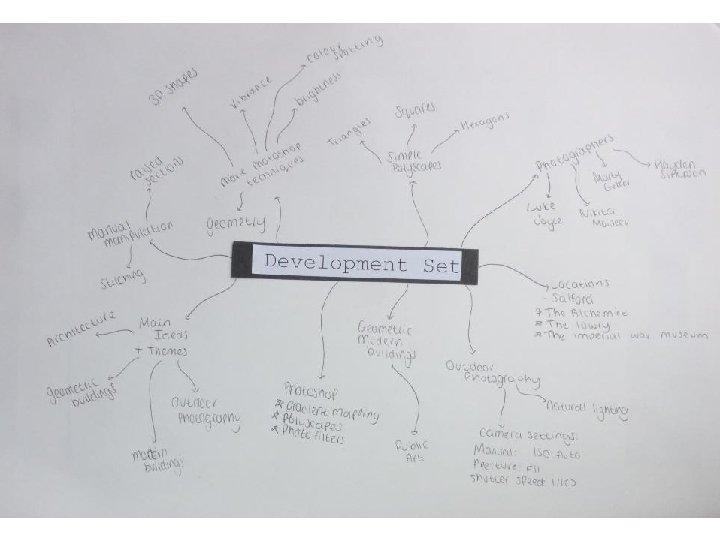 3D Shapes
Vibrance
Colour
Spotting
brightness
more Photoshop
techniques
geometry
Triangles
Squares
Hexagons
Simple
Polyscapes
Photographers
Luke
Nikita
Marty
Hayden
raised
sections
manual
manipulation
Stitching
Development Set
Locations
- Salford
* The Alchemist
* The lowry
* The imperial war museum
Architecture
Main
Ideas
+ Themes
geometric
buildings
modern
buildings
Outdoor
Photography
Photoshop
* Gradient Mapping
* Polyscapes
* Photo filters
Geometric
Modern
buildings
Public
Art
Outdoor
Photography
Natural lighting
Camera settings:
Manual: ISO Auto
F11
Shutter Speed